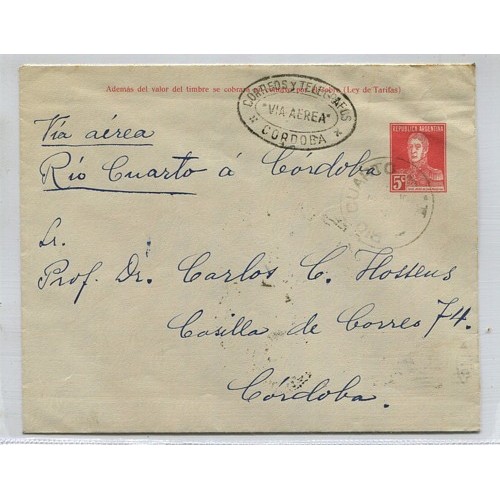 Además del valor del timbre se cobrará (Ley de Tarifas)
CORREOS Y TELEGRAFOS
"VIA AEREA"
CORDOBA
REPUBLICA ARGENTINA
5c
RIO CUARTO
Vía aérea
Río Cuarto á Córdoba
Sr.
Prof. Dr. Carlos C. Hosseus
Casilla de Correo 74.
Córdoba.